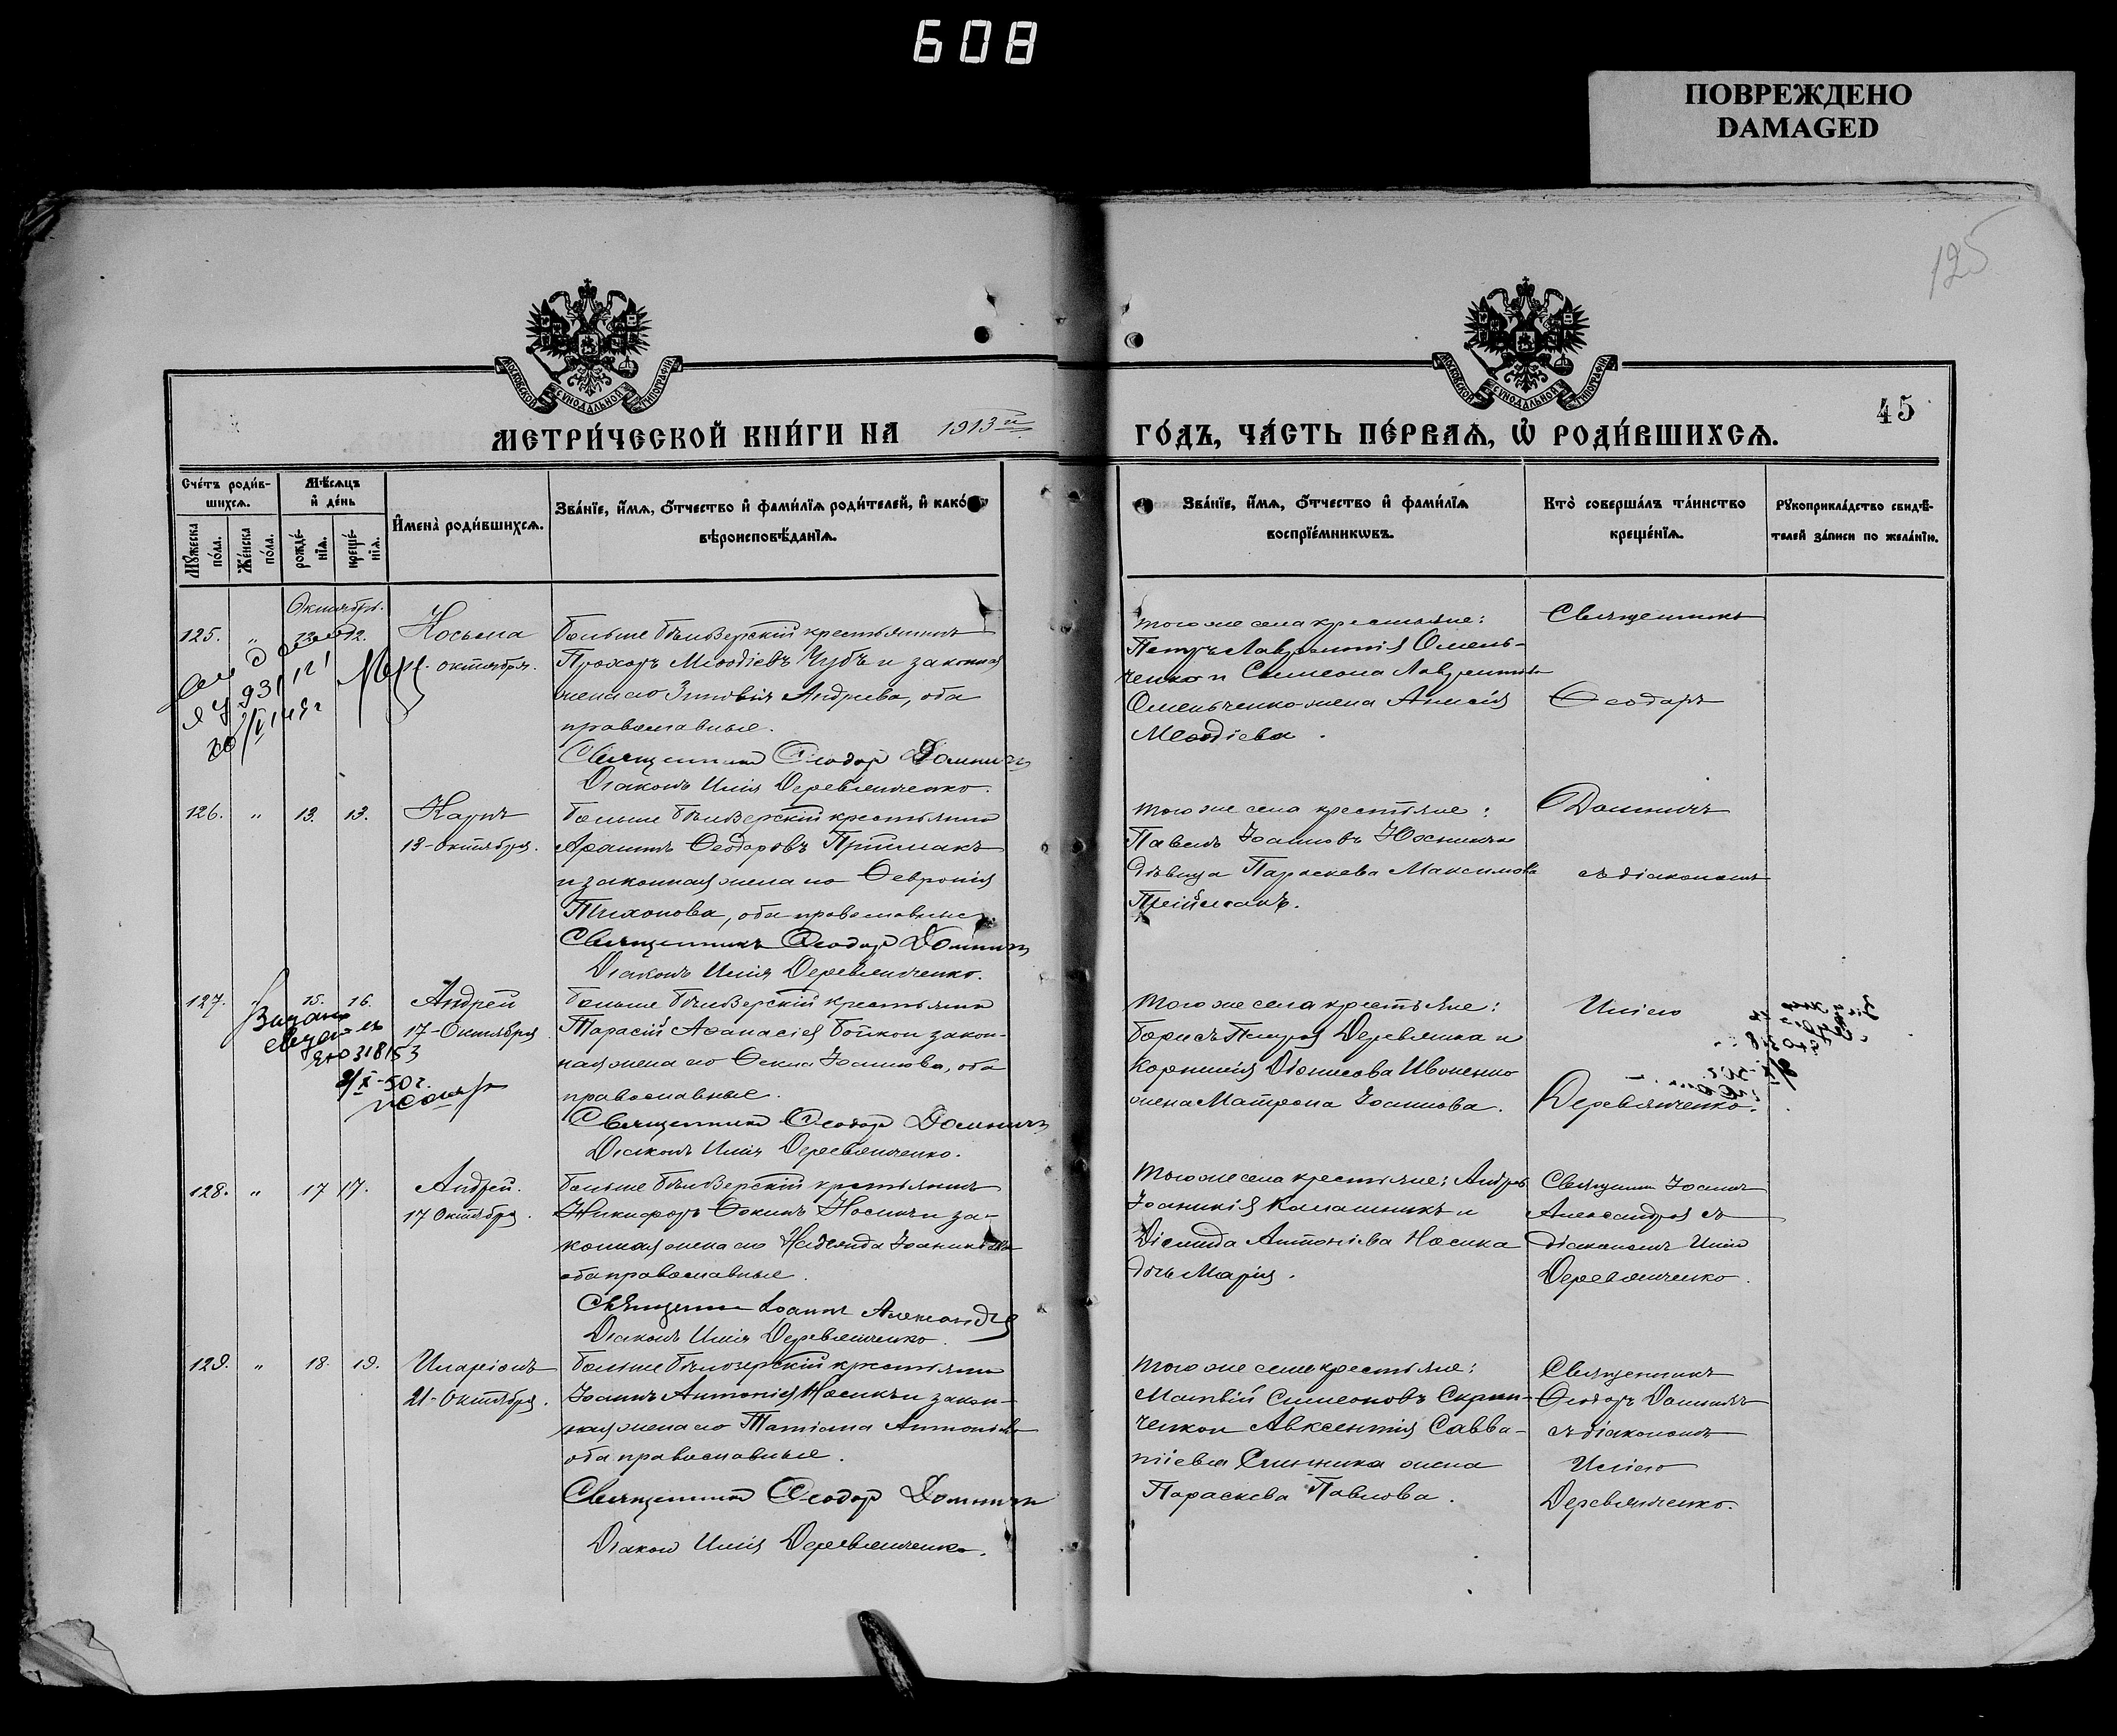 608
ПОВРЕЖДЕНО
DAMAGED
125
45
МОСКОВСКОЙ СУНОДАЛЬНОЙ ТИПОГРАФІИ
МОСКОВСКОЙ СУНОДАЛЬНОЙ ТИПОГРАФІИ
МЕТРИ́ЧЕСКОЙ КНИ́ГИ НА 1913й
ГО́ДЪ, ЧА́СТЬ ПЕ́РВАѦ, Ѽ РОДИ́ВШИХСѦ.
Сче́тъ роди́в-
шихсѧ.
Мꙋжеска по́ла.
Же́нска по́ла.
Мѣ́сѧцъ
и҆ де́нь
рожде́-
нїѧ.
креще́-
нїѧ.
И҆мена̀ роди́вшихсѧ.
Зва́нїе, и҆́мѧ, ѻ҆́тчество и҆ фами́лїѧ роди́телей, и҆ како́
вѣроисповѣ́данїѧ.
Зва́нїе, и҆́мѧ, ѻ҆́тчество и҆ фами́лїѧ
воспрїе́мникѡвъ.
Кто̀ соверша́лъ та́инство
креще́нїѧ.
Рꙋкоприкла́дство свидѣ́-
телей за́писи по жела́нїю.
Октябрь.
125. " 12.
Косьма
октября.
Больше Бѣлозерскій крестьянинъ
Прохоръ Меѳодіевъ Чубъ и законная
жена его Зиновія Андреева, оба
православные.
Священникъ Ѳеодоръ Домничъ
Діаконъ Илія Деревянченко.
того же села крестьяне:
Петръ Лаврентія Омель-
ченко и Симеона Лаврентіева
Омельченко жена Анисія
Меѳодіева.
Священникъ
Ѳеодоръ
126. " 13. 13.
Карпъ
13-октября.
Больше Бѣлозерскій крестьянинъ
Ѳеодоровъ Приймакъ
и законная жена его Ѳевронія
Тихонова, оба православные
Священникъ Ѳеодоръ Домничъ
Діаконъ Илія Деревянченко.
того же села крестьяне:
Павелъ Іоанновъ
дѣвица Параскева Максимова
Приймакъ.
Домничъ
съ діакономъ
127. " 15. 16.
Андрей
17-Октября
Больше Бѣлозерскій крестьянинъ
Тарасій Аѳанасія Бойко и закон-
ная жена его Ѳекла Іоаннова, оба
православные.
Священникъ Ѳеодоръ Домничъ
Діаконъ Илія Деревянченко.
318153
того же села крестьяне:
Борисъ Петровъ Деревянка и
Корнилія Діонисова Ивоненко
жена Матрона Іоаннова.
Иліею
Деревянченко.
128. " 17 17.
Андрей.
17 Октября.
Больше Бѣлозерскій крестьянинъ
Никифоръ Ѳокинъ Носикъ и за-
конная жена его Надежда Іоанникіева
оба православные.
Священникъ Іоаннъ Александровъ
Діаконъ Илія Деревянченко.
того же села крестьяне: Андрей
Іоанникія Калашникъ и
Діомида Антоніева Носика
дочь Марія.
Священникъ Іоаннъ
Александровъ съ
діакономъ Иліею
Деревянченко.
129. " 18. 19.
Иларіонъ
21-Октября.
Больше Бѣлозерскій крестьянинъ
Іоаннъ Антонія Носикъ и закон-
ная жена его Татіана Антоніева
оба православные.
Священникъ Ѳеодоръ Домничъ
Діаконъ Илія Деревянченко.
того же села крестьяне:
Матвій Симеоновъ Скрип-
ченко и Авксентія Савва-
тіева жена
Параскева Павлова.
Священникъ
Ѳеодоръ Домничъ
съ діакономъ
Иліею
Деревянченко.